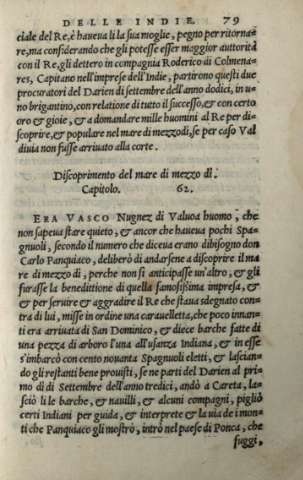 DELLE INDIE. 79
ciale del Re, è haueua li la sua moglie, pegno per ritorna=
re, ma considerando che gli potesse esser maggior auttorità
con il Re, gli dettero in compagnia Roderico di Colmena=
res, Capitano nell'imprese dell'Indie, partirono questi due
procuratori del Darien di settembre dell'anno dodici, in u=
no brigantino, con relatione di tutto il successo, & con certo
oro & gioie, & a domandare mille huomini al Re per di=
scoprire, & populare nel mare di mezzodi, se per caso Val
diuia non fusse arriuato alla corte.
Discoprimento del mare di mezzo di.
Capitolo. 62.
ERA VASCO Nugnez di Valuoa huomo, che
non sapeua stare quieto, & ancor che haueua pochi Spa=
gnuoli, secondo il numero che diceua erano dibisogno don
Carlo Panquiaco, deliberò di andarsene a discoprire il ma
re di mezzo di, perche non si anticipasse un'altro, & gli
furasse la benedittione di quella famosissima impresa, &
& per seruire & aggradire il Re che staua sdegnato con=
tra di lui, misse in ordine una carauelletta, che poco innan=
ti era arriuata di San Dominico, & diece barche fatte di
una pezza di arboro l'una all'usanza Indiana, & in esse
s'imbarcò con cento nouanta Spagnuoli eletti, & lascian=
do gli restanti bene prouisti, se ne parti del Darien al pri=
mo di di Settembre dell'anno tredici, andò a Careta, la=
sciò li le barche, & nauilli, & alcuni compagni, pigliò
certi Indiani per guida, & interprete & la uia de i mon=
ti che Panquiaco gli mostrò, intrò nel paese di Ponca, che
fuggi,